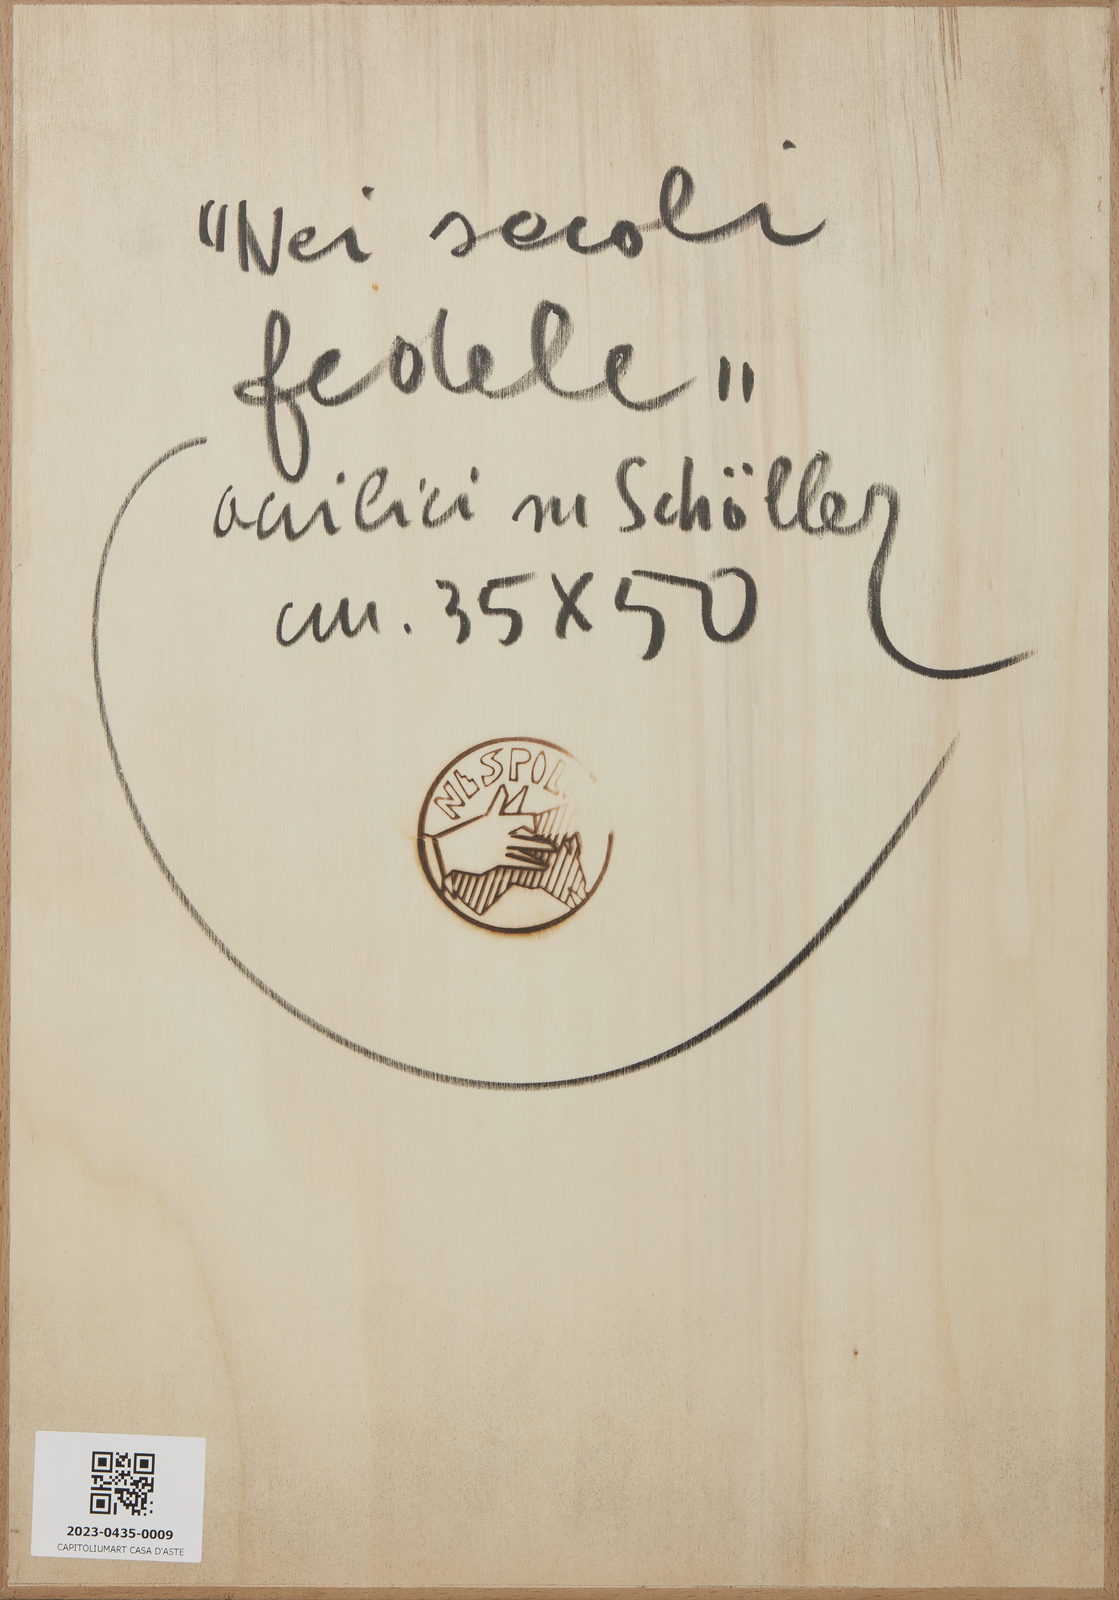 "Nei secoli
fedele"
acrilici su Schöller
cm. 35X50
NESPOL
2023-0435-0009
CAPITOLIUMART CASA D'ASTE